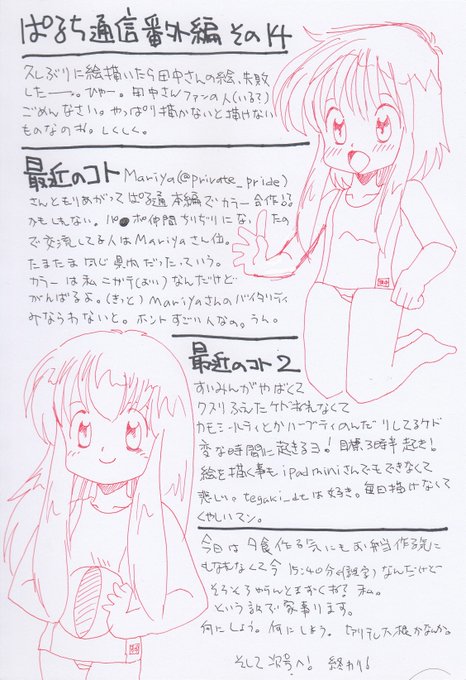 ぱるち通信番外編 その14
久しぶりに絵描いたら田中さんの絵、失敗
したーー。ひゃー。田中さんファンの人(いる?)
ごめんなさい。やっぱり描かないと描けない
ものなのね。しくしく。
最近のコト Mariya(@private_pride)
さんともりあがってぱる通本編でカラー合作する
かもしれない。
で交流してる人はMariyaさん位。
たまたま同じ県内だったっていう。
カラーは私ニガテ なんだけど
がんばるよ。(きっと) Mariyaさんのバイタリティ
みならわないと。ホントすごい人なの。うん。
最近のコト2
すいみんがやばくて
クスリふえたケドねれなくて
カモミールティとかハーブティのんだりしてるケド
変な時間に起きるヨ!目標3時半起き!
絵を描く事も ipad miniさんでもできなくて
悲しい。tegaki_dtは好き。毎日描けなくて
くやしいマン。
今日は夕食作る気にもお弁当作る気に
もなれなくて今 15:40分 なんだけど
そろそろやらんとまずくね?私。
という訳で家事ります。
何にしよう。何にしよう。
そして次号へ! 終わり!